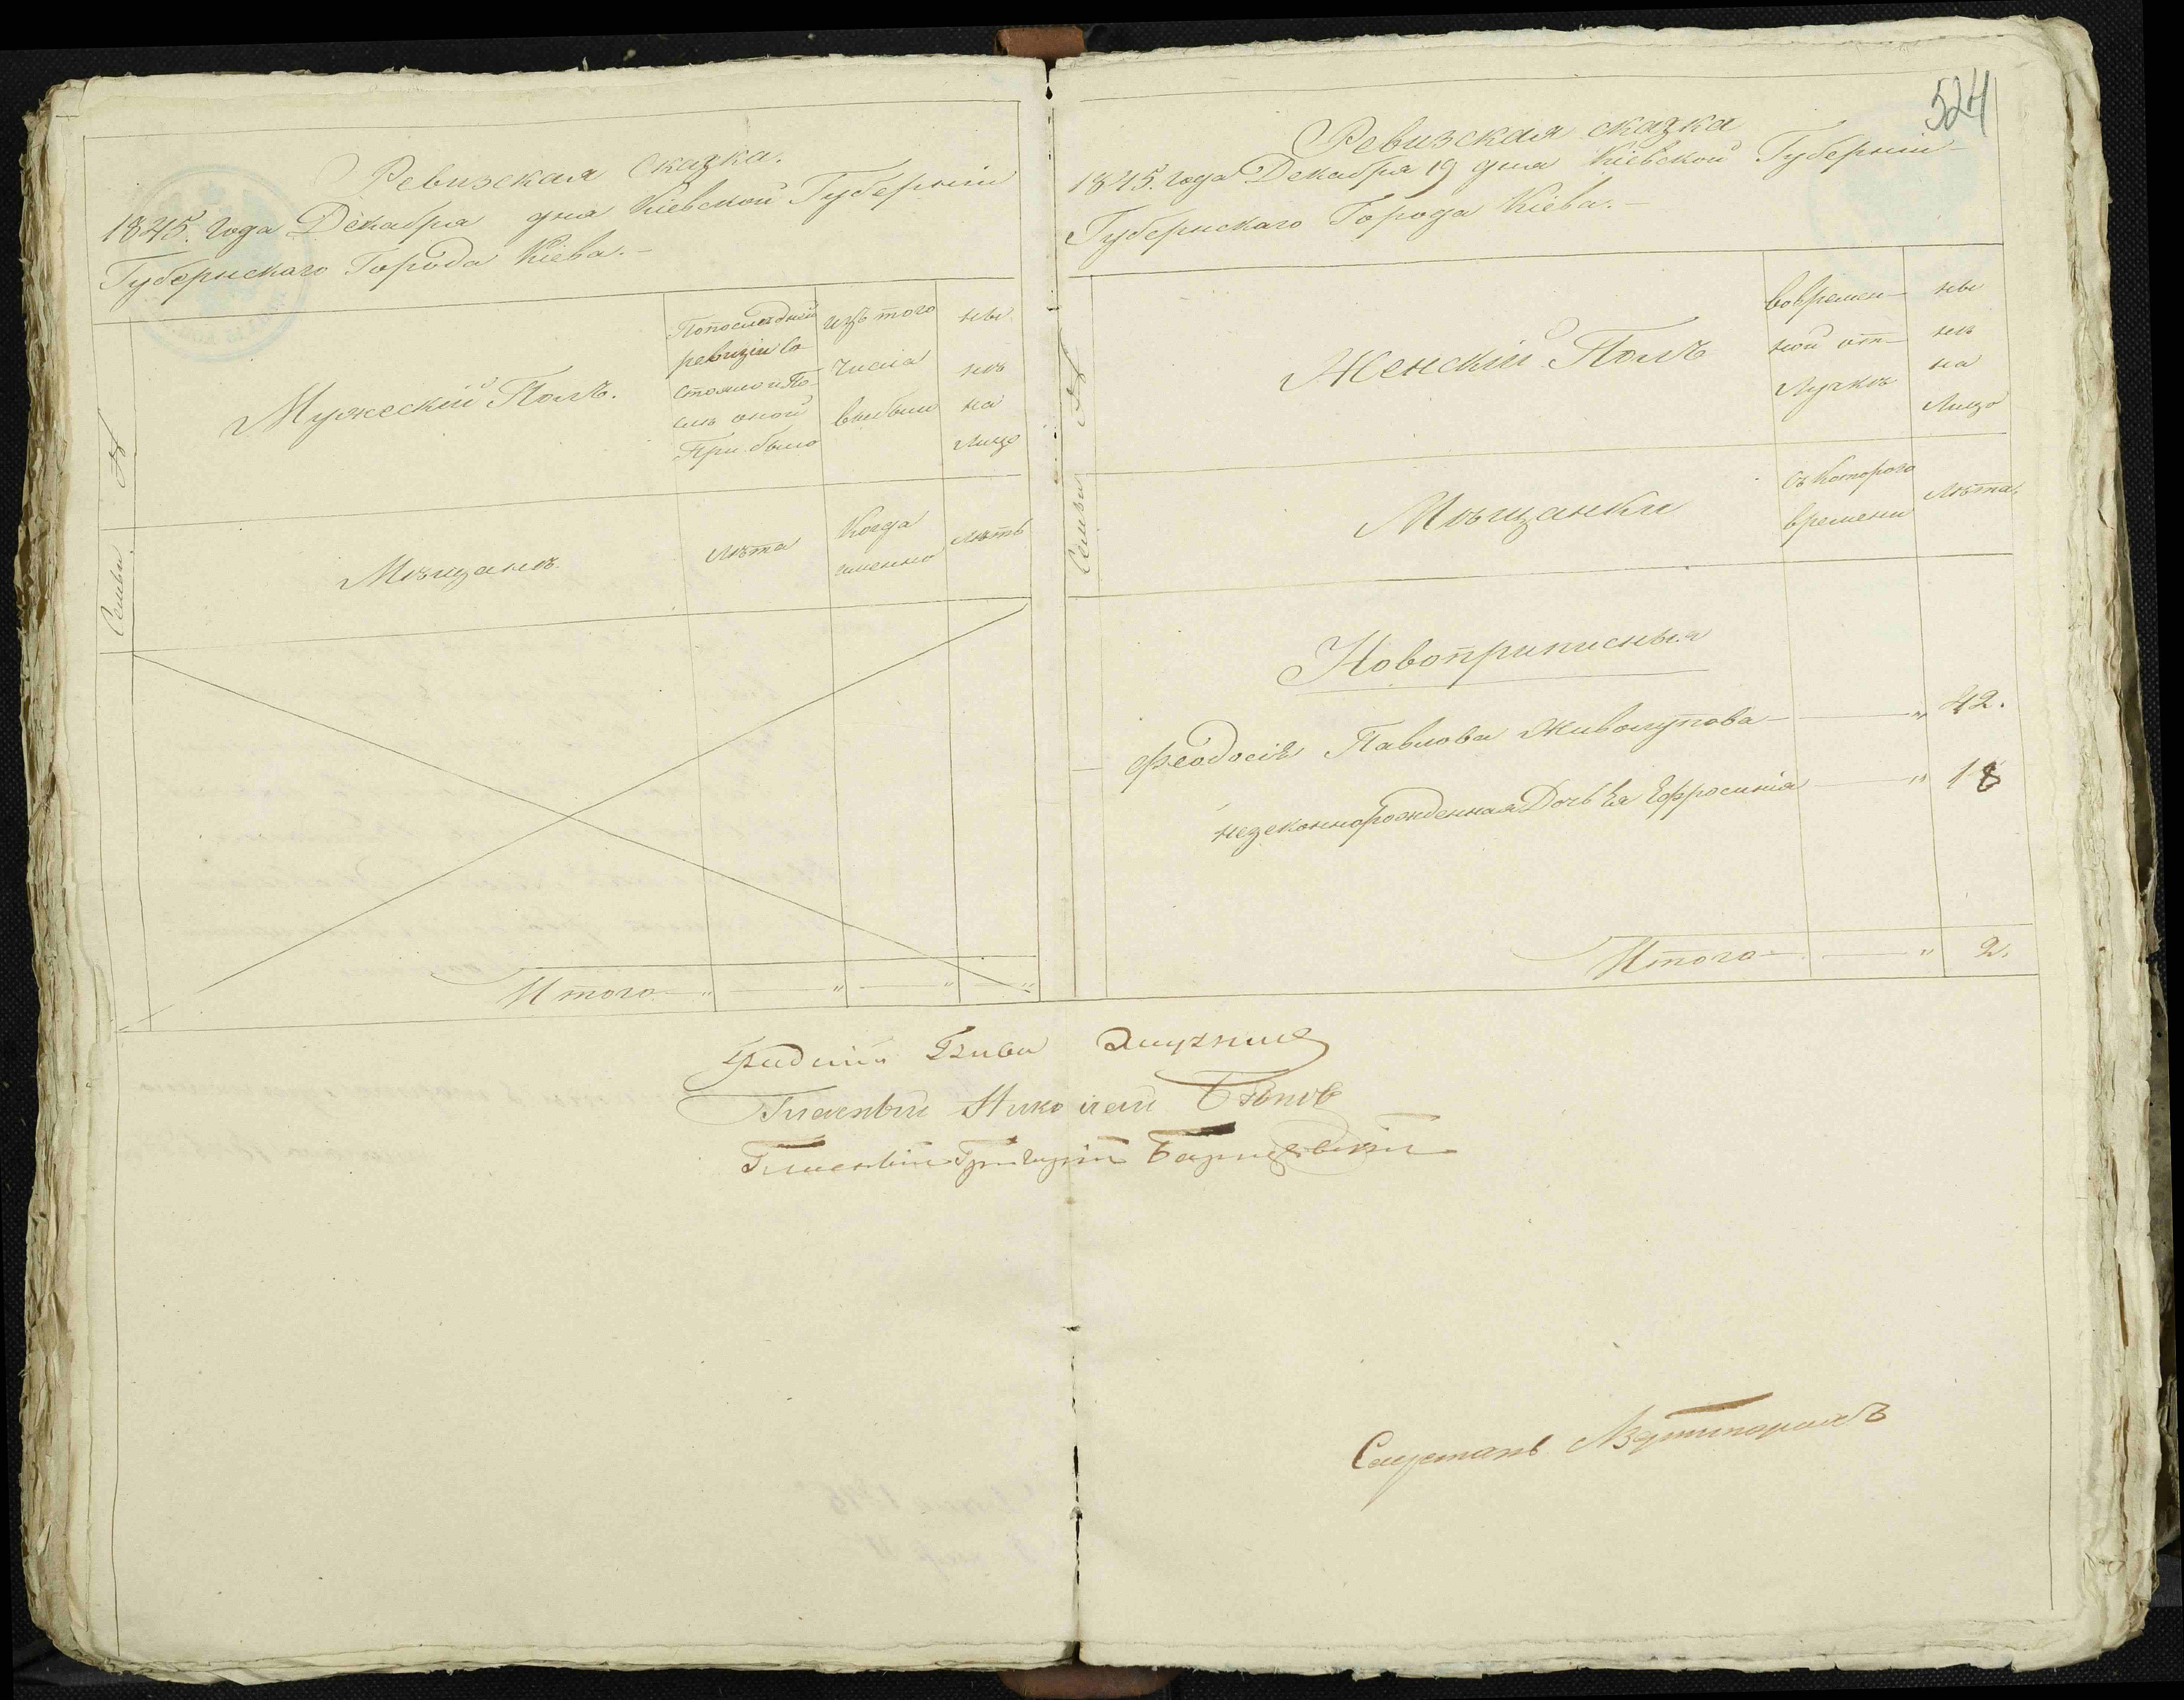 524
Ревизская Сказка.
1845. года Декабря дня Кіевской Губерніи
Губернскаго Города Кіева.-
№ Семьи
Мужескій Полъ.
По последней ревизіи Состояло и После оной Прибыло
изъ того числа выбыло
ны не на лицо
Мѣщанъ
лѣта
Когда именно
лѣтъ
Итого
Ревизская сказка
1845. года Декабря 19 дня Кіевской Губерніи-
Губернскаго Города Кіева.-
№ Семьи
Женскій Полъ
во времен-ной от-лучкѣ
ны нѣ на Лицо
Мѣщанки
Съ Которого времени
Лѣта.
Новоприписныя
Феодосія Павлова Живолупова 42.
незаконнорожденная Дочь Ея Ефросинія 18
Итого 2.
Гласный Николай
Гласный Григорій